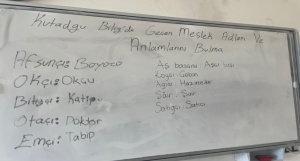 Kutadgu Bilig'de Geçen Meslek Adları Ve
Anlamlarını Bulma
Afsunçı: Büyücü
Okçı: Okçu
Bitigçi: Katip
Otacı: Doktor
Emçi: Tabip
Aş başçısı: Aşçı başı
Ağıçı: Hazinedar
Satıgçı: Satıcı